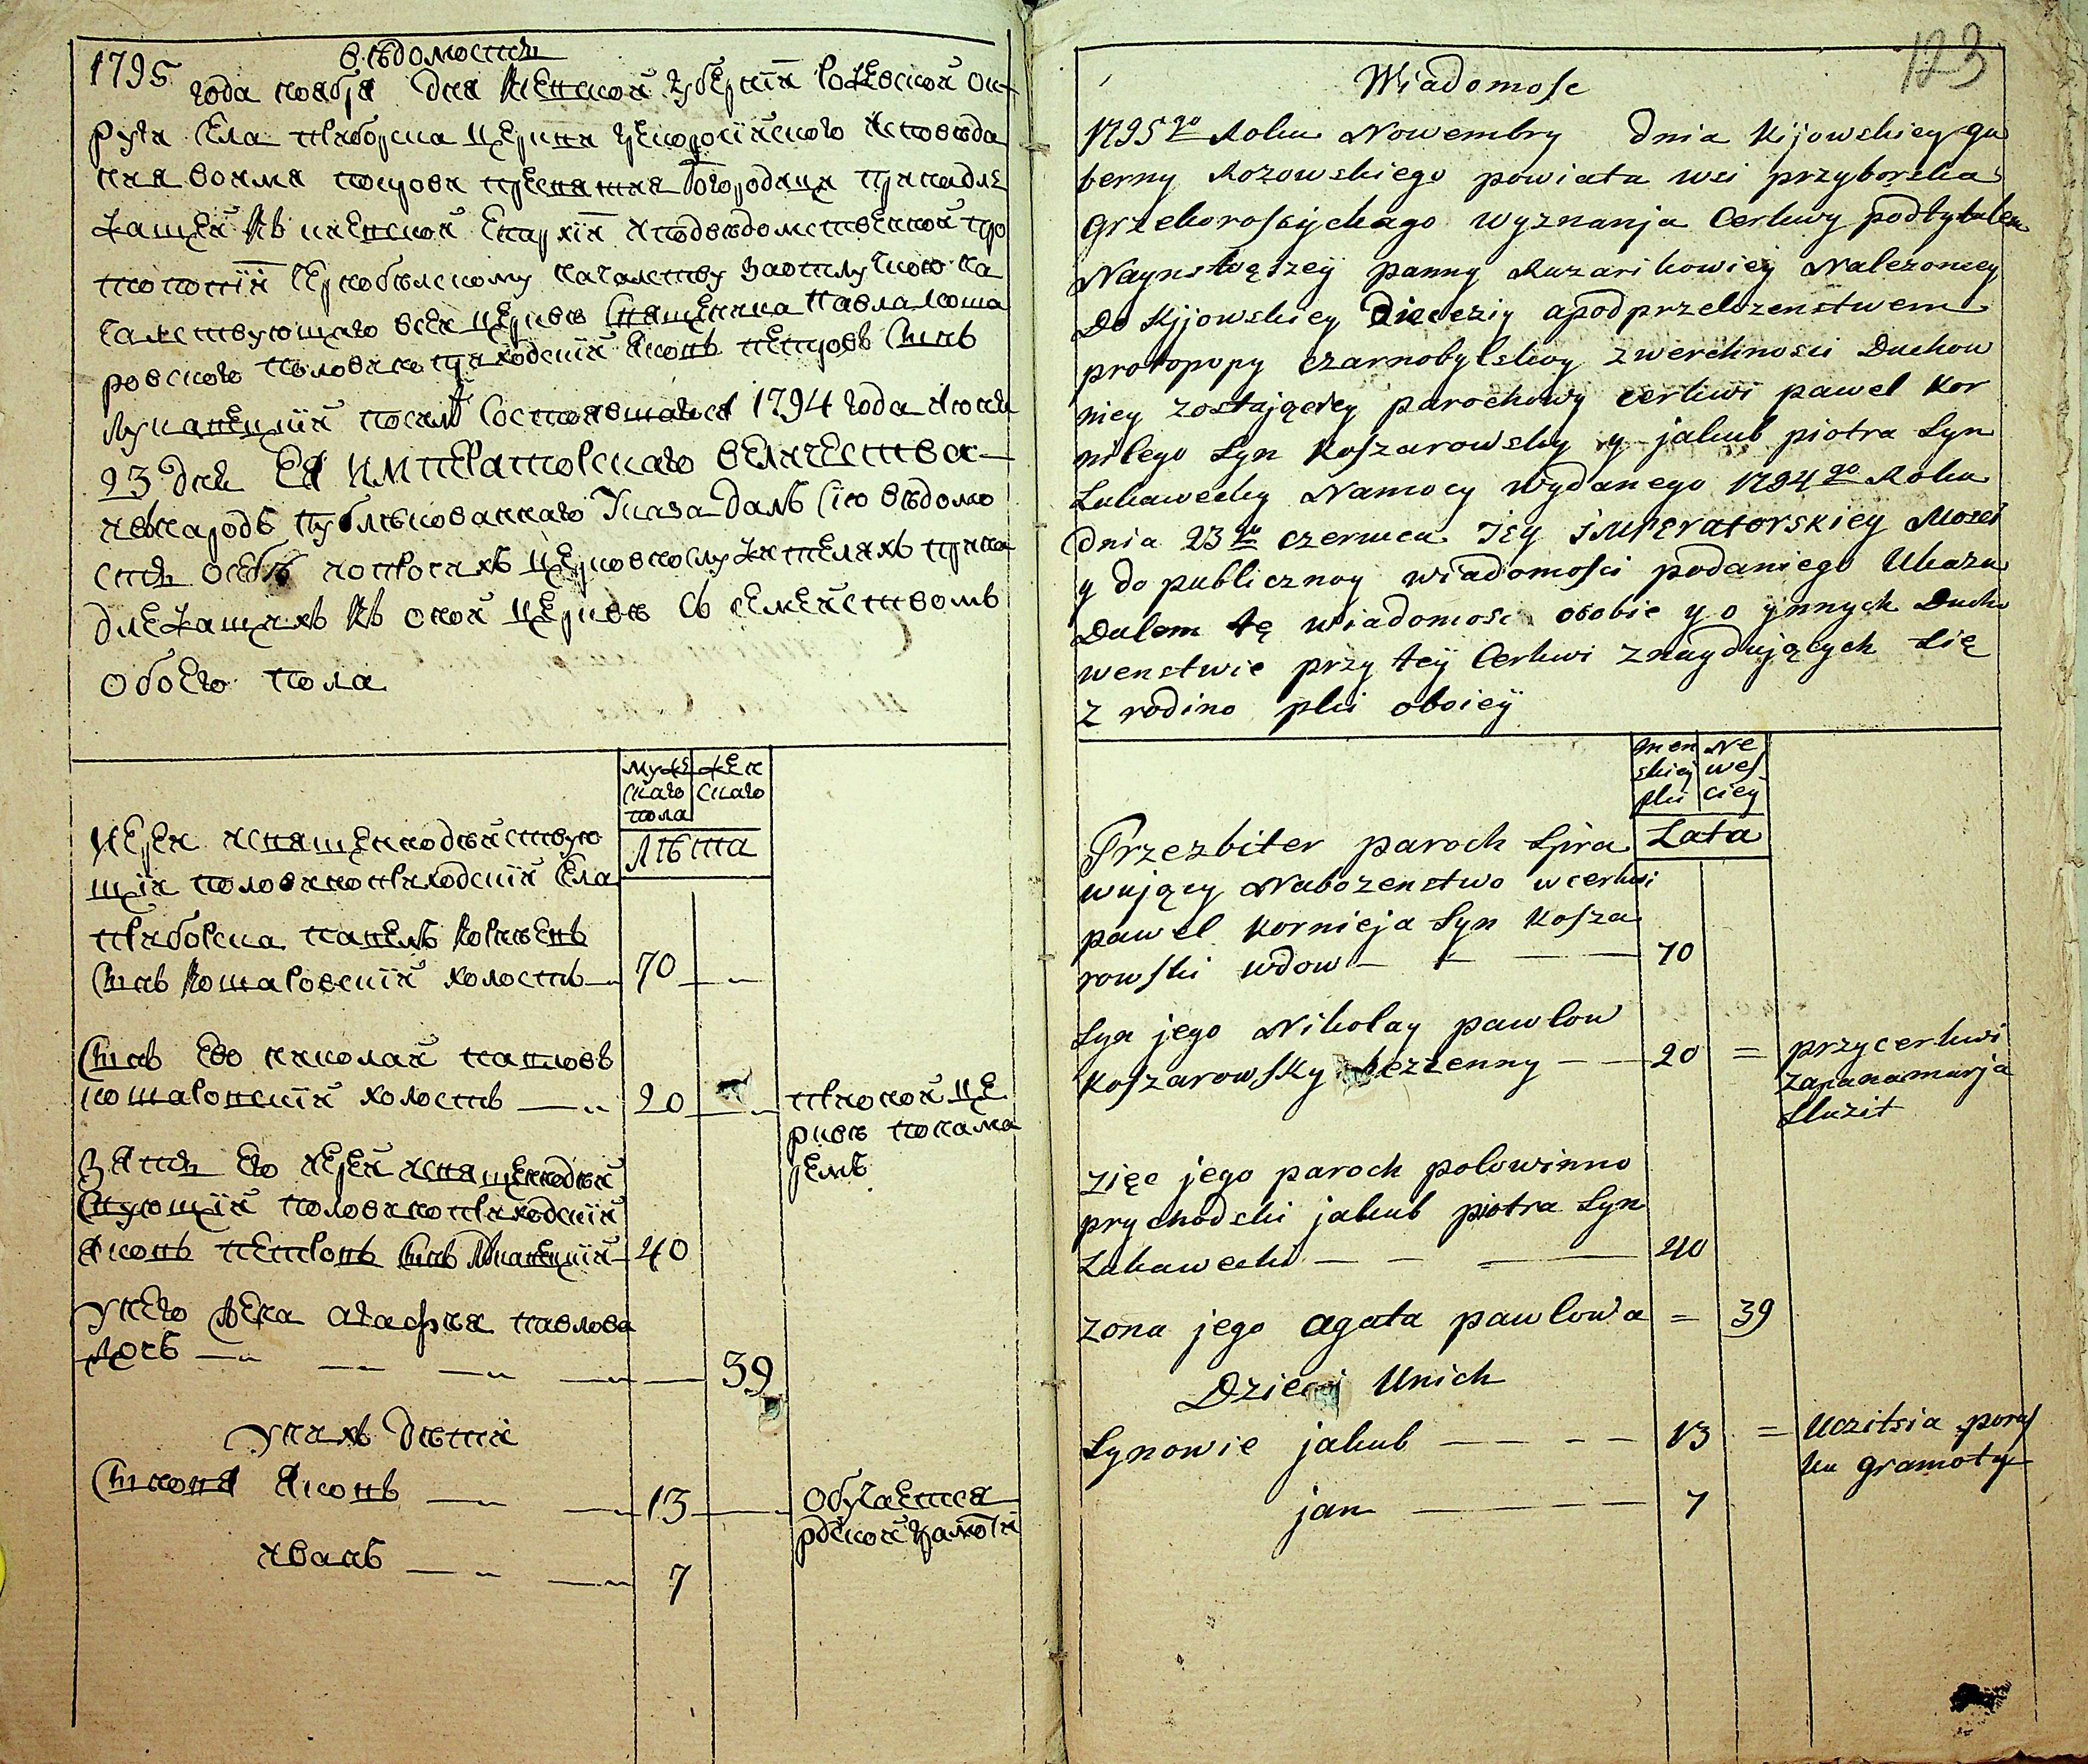 вѣдомость
1795 года ноября дня Кіевской губернїи Рожевской ок
руги села Приборска церкви грекороссїйского исповѣда
ния воимя покрова пресвятия Богородици принадле
жащей Къ киевской Епархїи иподведомственной про
топопїи Чернобылскому началству
салствующаго всея церквѣ Священика Павла Коша
ровского половиноприходскїй Яковъ петровъ Синъ
Лукавецкїй посилѣ Состоявшагося 1794 года июня
23 дня ЕЯ ИМПЕРАТОРСКАГО ВЕЛИЧЕСТВА
ивнародъ публѣкованнаго Указа далъ Сїю вѣдомо
сть осебѣ ипопросихъ церковнослужителяхъ прина
длежащихъ Къ оной церквѣ Съ семействомъ
обоего пола
муже
скаго
пола
жен
скаго
Лѣта
Иерей исвященнодѣйствую
щїй половиноприходскїй села
Приборска павелъ Корнѣевъ
Синъ Кошаровскїй холостъ 70
Синъ Его николай павловъ
кошаровскїй холостъ 20 прионой це
рквѣ понама
ремъ
Зять его иерей исвященнодѣй
ствующїй половиноприходскїй
Яковъ петровъ Синъ Лукавецкїй 40
Унего жена агафия павлова
дочь 39
Унихъ дѣти
Синовя Яковъ 13 обучается
рускои грамотѣ
иванъ 7
123
Wiadomosc
1795go Roku Nowembry dnia Kijowskiey gu
berny Rozowskiego powiata wsi przyborska
Grzekorossyjchago wyznanja Cerkwy podtytulem
Nayns węszey panny Ruzarikowiey Nalezoncey
Do Kijowskiey Diecezij apodprzelozenstwem
protopopy czarnobylskoy zwerchnosci Duchow
niey zostającey parochowy cerkwi pawel Kor
nilego Syn Koszarowsky y jakub piotra Syn
Lukawecky Namocy wydanego 1794go Roku
dnia 23go czerwca JEy iMPERATORSKIEy MoscI
y do publicznoy wiadomosci podaniego Ukazu
Dalem tę wiadomosc osobie y o ynnych Ducho
wenstwie przy tey Cerkwi znaydujących Się
z rodino plci oboiey
men
skiej
plci
Ne
wes
ciey
Lata
Przezbiter paroch Spra
wujący Nabozenstwo w cerkwi
pawel Kornieja Syn Kosza
rowski wdow 70
Syn jego Nikolay pawlow
Koszarowsky bezzenny 20 = przycerkwi
zapanamarja
Sluzit
zięc jego paroch polowinno
prychodski jakub piotra Syn
Lukawecki 40
zona jego agata pawlowa = 39
Dzieci Unich
Synowie jakub 13 = Uczitsia porus
ku gramoty
jan 7